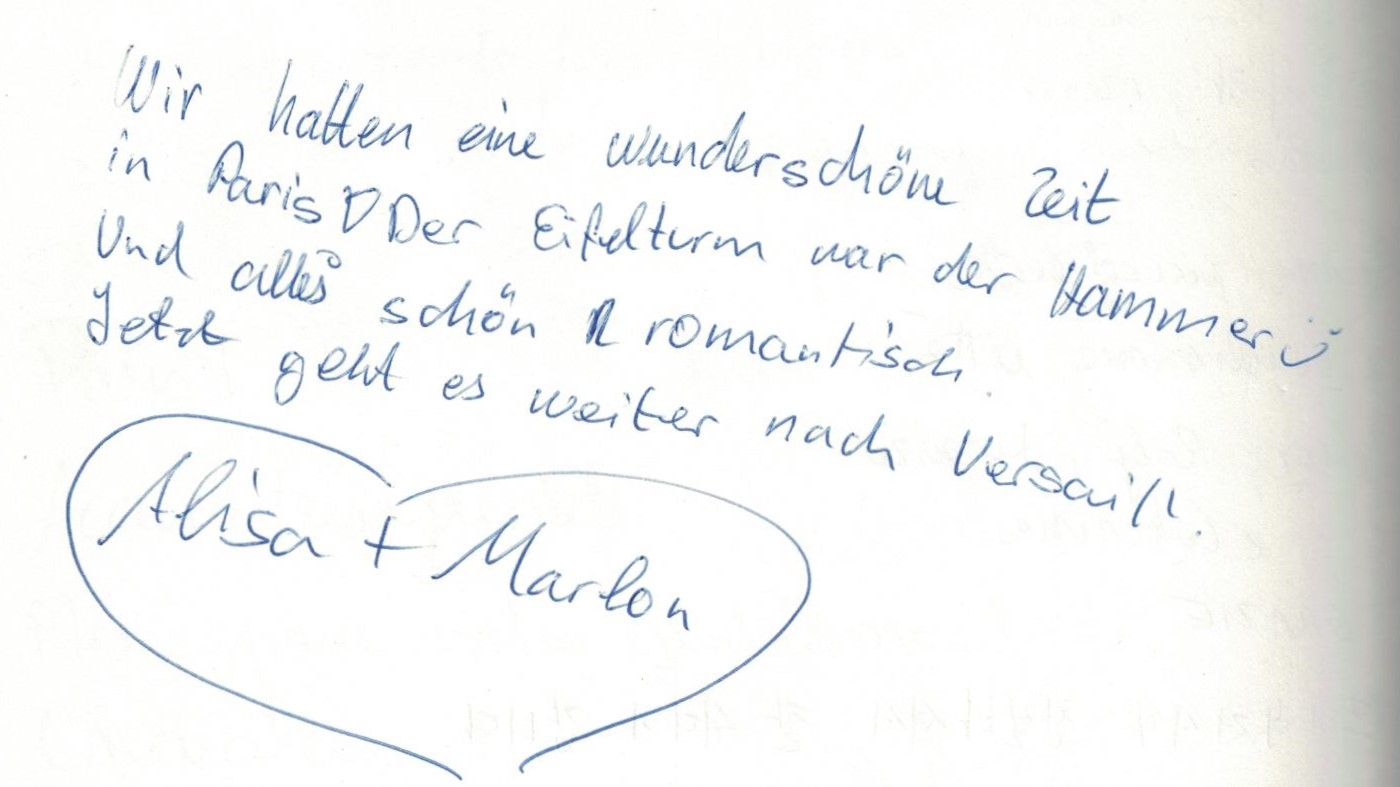 Wir hatten eine wunderschöne Zeit
in Paris ♡ Der Eifelturm war der Hammer ü
Und alles schön romantisch.
Jetzt geht es weiter nach Versaill.
Alisa + Marlon